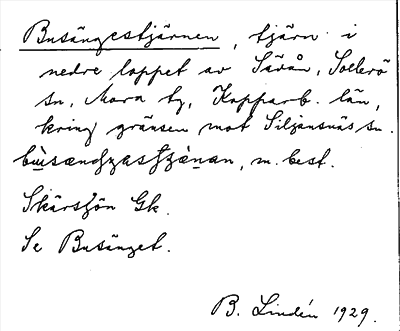 Busängestjärnen, tjärn i
nedre loppet av Säxån, Sollerö
sn, Mora tg, Kopparb. län,
kring gränsen mot Siljansnäs sn.
m. best.
Skärsjön Gk.
Se Busänget.
B. Lindén 1929.